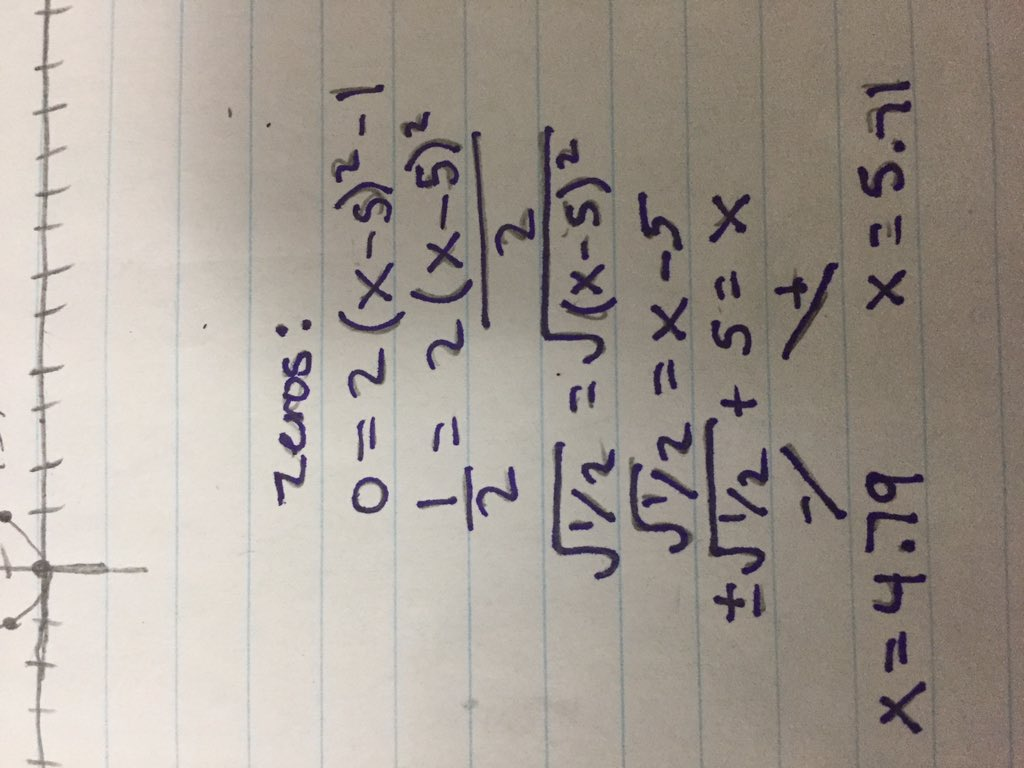 zeros:
0 = 2(x-5)² - 1
1/2 = 2(x-5)²/2
√1/2 = √(x-5)²
√1/2 = x-5
±√1/2 + 5 = x
- +
x = 4.79 x = 5.71